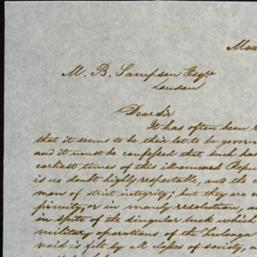 Mex
M. B. Sampson Esqr.
London
Dear Sir
It has often been r
that it seems to be their lot to be govern
and it must be confessed that such has
earliest times of this Repu
is no doubt highly respectable, and the
man of strict integrity; but they are
picuity, or in manly resolution, a
in spite of the singular luck which
military operations of the Zuloaga
void is felt by all classes of society, a